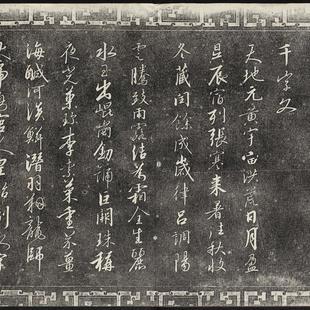 千字文
天地元黃宇宙洪荒日月盈
昃辰宿列張寒来暑往秋收
冬藏閏餘成歲律呂調陽
雲騰致雨露結為霜金生麗
水玉出崐崗劍號巨闕珠稱
夜光菓珍李柰菜重芥薑
海鹹河淡鱗潛羽翔龍師
火帝鳥官人皇始制文字